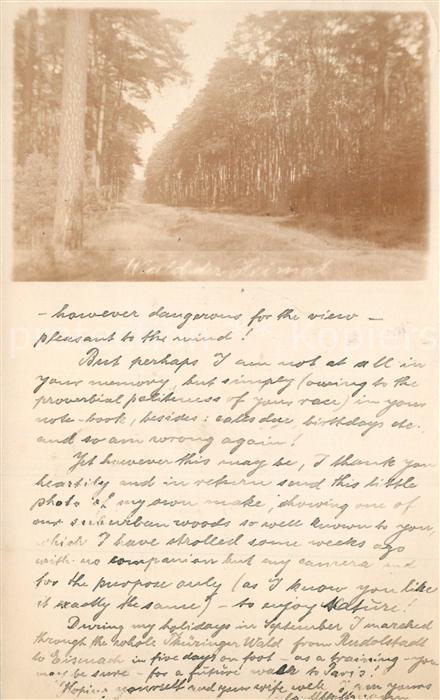 Wald der Heimat
- however dangerous for the view -
pleasant to the mind!
But perhaps I am not at all in
your memory, but simply (owing to the
proverbial politeness of your race) in your
note-book, besides: calesdue, birthdays etc.
and so am wrong again!
Yet however this may be, I thank you
heartily and in return send this little
photo of my own make, showing one of
our suburban woods so well known to you,
which I have strolled some weeks ago
with no companion but my camera and
for the purpose only (as I know you like
it exactly the same) - to enjoy Nature!
During my holidays in September I marched
through the whole Thüringer Wald from Rudolstadt
to Eisenach in five days on foot - as a training - you
may be sure - for a future walk to Paris!
Hoping yourself and your wife well I am yours